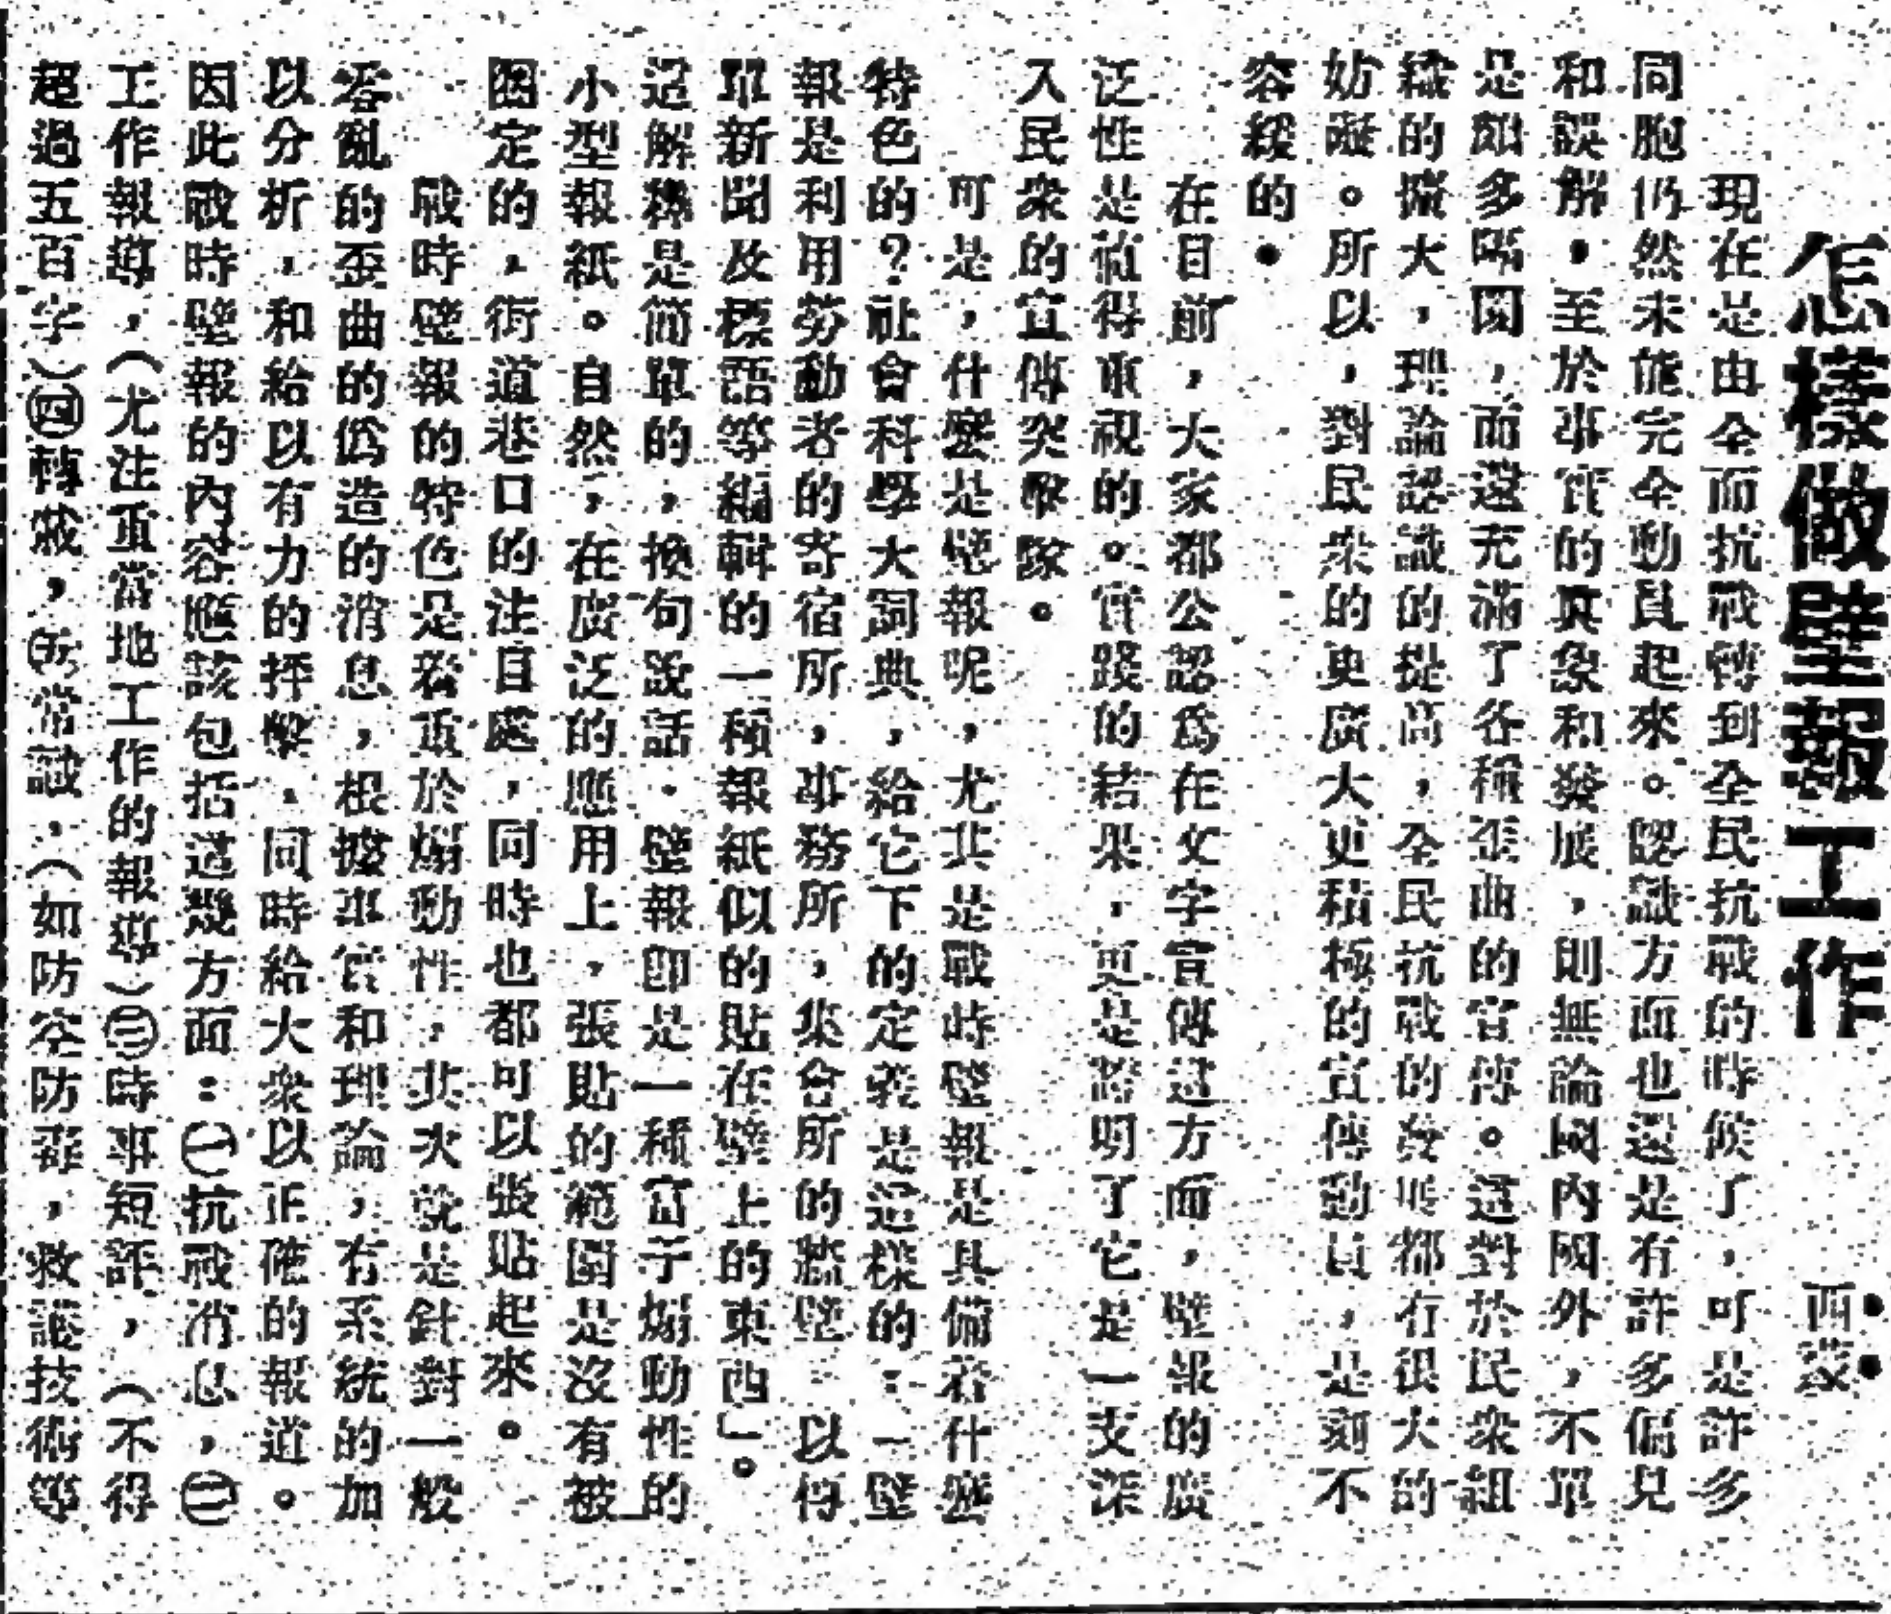 怎樣做壁報工作
西蒙
現在是由全面抗戰轉到全民抗戰的時候了，可是許多
同胞仍然未能完全動員起來。認識方面也還是有許多偏見
和誤解，至於事實的真象和發展，則無論國內國外，不單
是頗多隔閡，而還充滿了各種歪曲的宣傳。這對於民衆組
織的擴大，理論認識的提高，全民抗戰的發展都有很大的
妨礙。所以，對民衆的更廣大更積極的宣傳動員，是刻不
容緩的。
在目前，大家都公認爲在文字宣傳這方面，壁報的廣
泛性是值得重視的。實踐的結果，更是證明了它是一支深
入民衆的宣傳突擊隊。
可是，什麼是壁報呢，尤其是戰時壁報是具備着什麼
特色的？社會科學大詞典，給它下的定義是這樣的：「壁
報是利用勞動者的寄宿所，事務所，集會所的牆壁　以簡
單新聞及標語等編輯的一種報紙似的貼在壁上的東西」。
這解釋是簡單的，換句說話．壁報卽是一種富于煽動性的
小型報紙。自然，在廣泛的應用上，張貼的範圍是沒有被
固定的，街道巷口的注目處，同時也都可以張貼起來。
戰時壁報的特色是着重於煽動性，其次就是針對一般
淆亂的歪曲的僞造的消息，根據事實和理論，有系統的加
以分析，和給以有力的抨擊．同時給大衆以正確的報道。
因此戰時壁報的內容應該包括這幾方面：㊀抗戰消息，㊁
工作報導，（尤注重當地工作的報導）㊂時事短評，（不得
超過五百字）㊃轉載，㊄常識，（如防空防毒，救護技術等